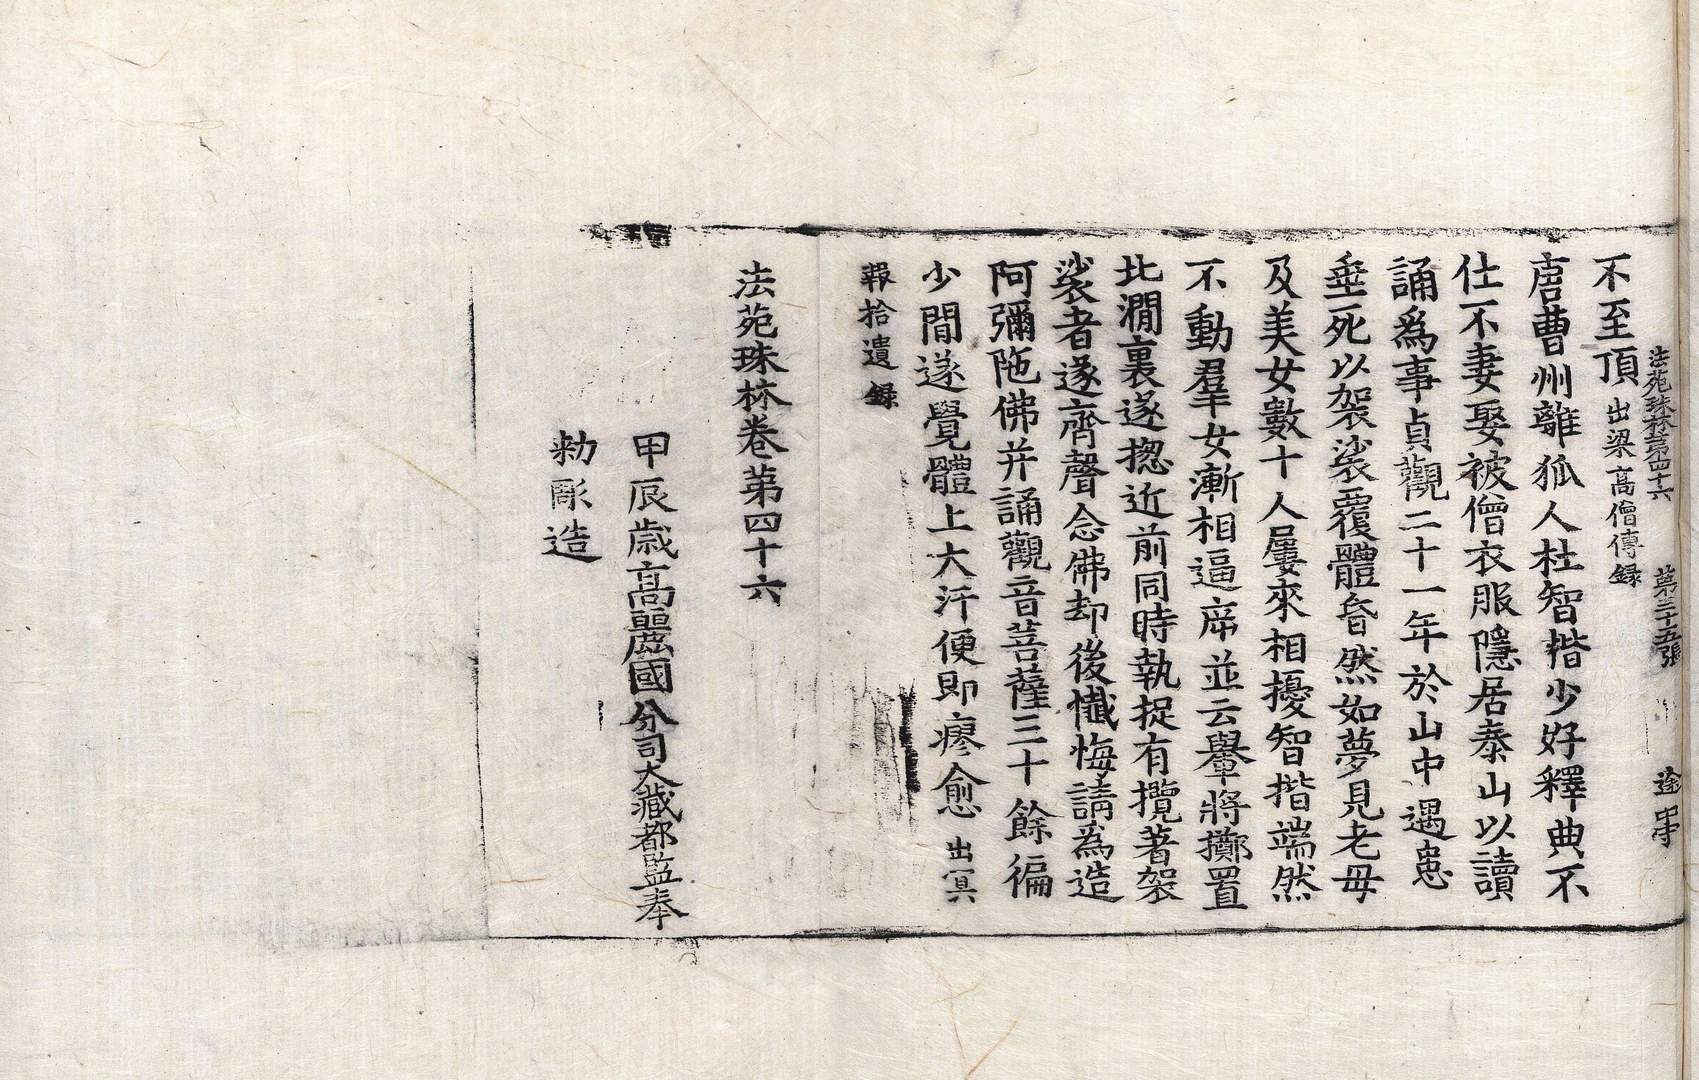 法苑珠林第四十六 第三十五張 途 中字
不至頂 出梁高僧傳録
唐曹州離狐人杜智揩少好釋典不
仕不妻娶被僧衣服隱居泰山以讀
誦爲事貞觀二十一年於山中遇患
垂死以袈裟覆體昏然如夢見老母
及美女數十人屢來相擾智揩端然
不動羣女漸相逼斥並云轝將擲置
北澗裏遂揔近前同時執捉有攬著袈
裟者遂齊聲念佛却後懺悔請爲造
阿彌陁佛并誦觀音菩薩三十餘徧
少間遂覺體上大汗便即瘳愈 出冥
報拾遺録
法苑珠林卷第四十六
甲辰歳高麗國分司大藏都監奉
勑彫造